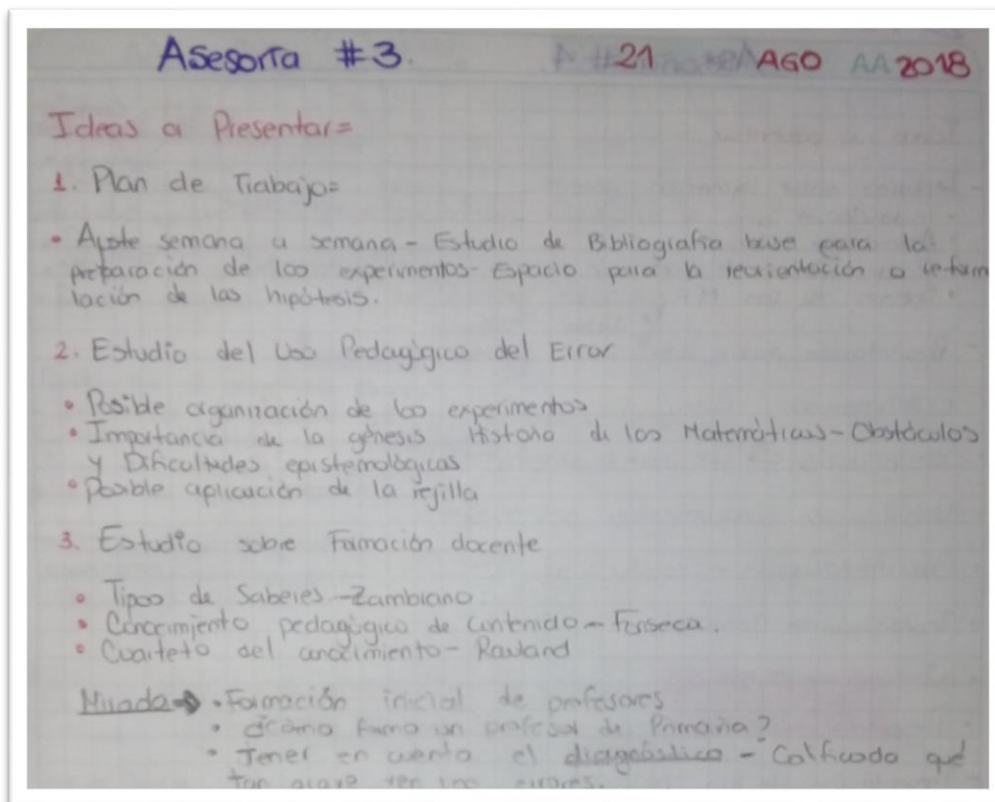 Asesoría #3. 21 AGO AA 2018
Ideas a Presentar=
1. Plan de Trabajo=
• semana a semana - Estudio de Bibliografía base para la
preparación de los experimentos - Espacio para la reorientación o reformu
lación de las hipótesis.
2. Estudio del Uso Pedagógico del Error
• Posible organización de los experimentos
• Importancia de la génesis Historia de las Matemáticas - Obstáculos
y Dificultades epistemológicas
• Posible aplicación de la rejilla
3. Estudio sobre Formación docente
• Tipos de Saberes - Zambrano
• Conocimiento pedagógico de contenido - Fonseca.
• Cuarteto del conocimiento - Rowland
Mirada → • Formación inicial de profesores
• ¿Cómo formo un profesor de Primaria?
• Tener en cuenta el diagnóstico - Calificado qué
tan grave son los errores.